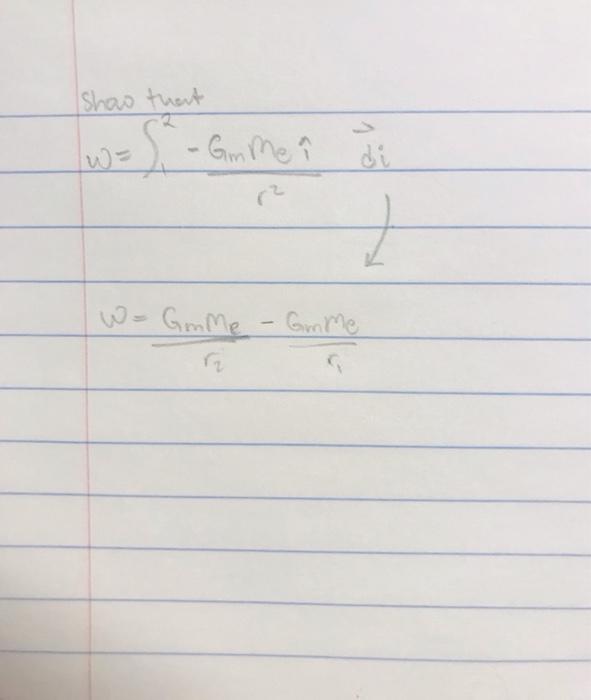 Show that
W = ∫₁² - GmMe r̂ / r² d⃗i
W = GmMe / r₂ - GmMe / r₁